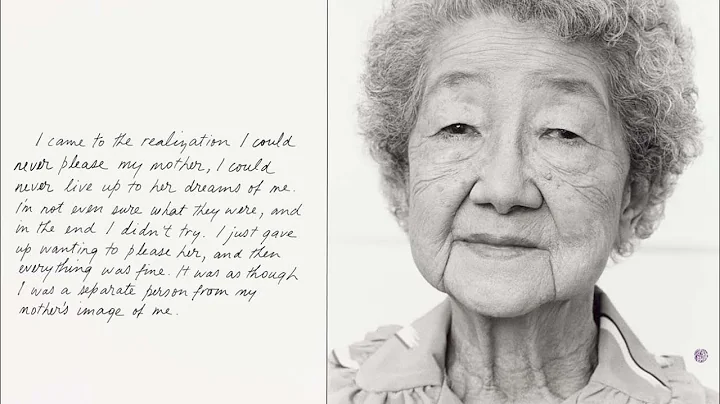 I came to the realization I could
never please my mother, I could
never live up to her dreams of me.
I'm not even sure what they were, and
in the end I didn't try. I just gave
up wanting to please her, and then
everything was fine. It was as though
I was a separate person from my
mother's image of me.